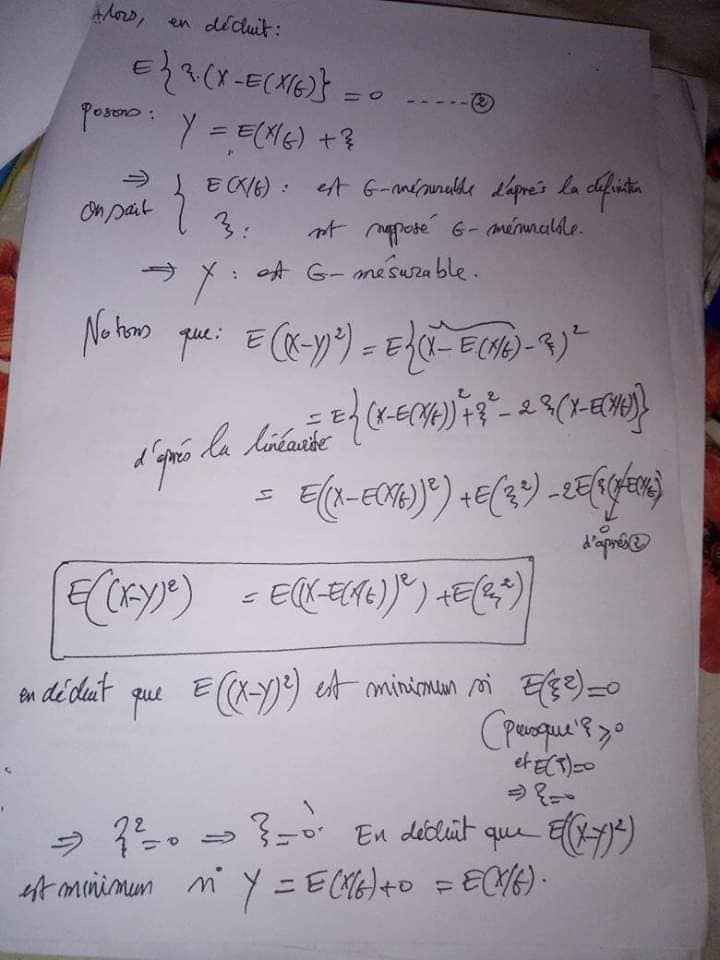 Alors, en déduit:
E{ξ.(X-E(X/G)} = 0 ------②
posons: Y = E(X/G) + ξ
⇒ { E(X/G): est G-mésurable d'après la définition
On sait { ξ: est supposé G-mésurable.
⇒ Y: est G-mésurable.
Notons que: E((X-Y)²) = E{(X-E(X/G)-ξ)²
= E{(X-E(X/G))²+ξ²-2ξ(X-E(X/G))}
d'après la linéarité
= E((X-E(X/G))²)+E(ξ²)-2E(ξ(X-E(X/G))
0
d'après②
E((X-Y)²) = E((X-E(X/G))²)+E(ξ²)
en déduit que E((X-Y)²) est minimum si E(ξ²)=0
(puisque ξ ≥ 0
et E(ξ)=0
⇒ ξ=0
⇒ ξ²=0 ⇒ ξ=0. En déduit que E((X-Y)²)
est minimum si Y = E(X/G)+0 = E(X/G).